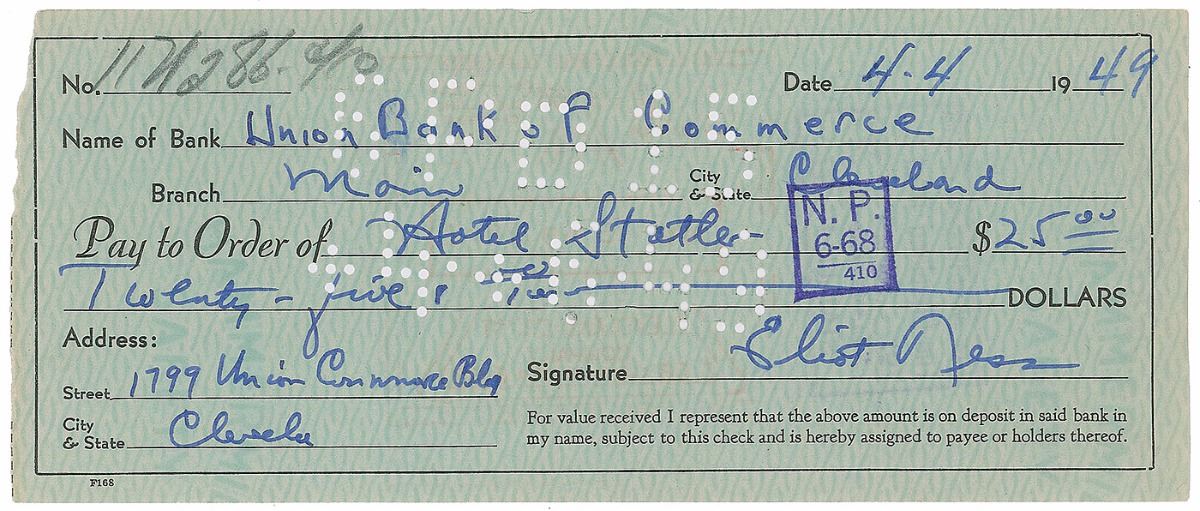 No. Date 4-4 1949
Name of Bank Union Bank of Commerce
Branch Main City & State Cleveland
Pay to Order of Hotel Statler $25.00
N. P.
6-68
410
Twenty-five & DOLLARS
Address:
Street 1799 Union Commerce Bldg Signature Eliot Ness
City & State Cleveland
For value received I represent that the above amount is on deposit in said bank in
my name, subject to this check and is hereby assigned to payee or holders thereof.
F168